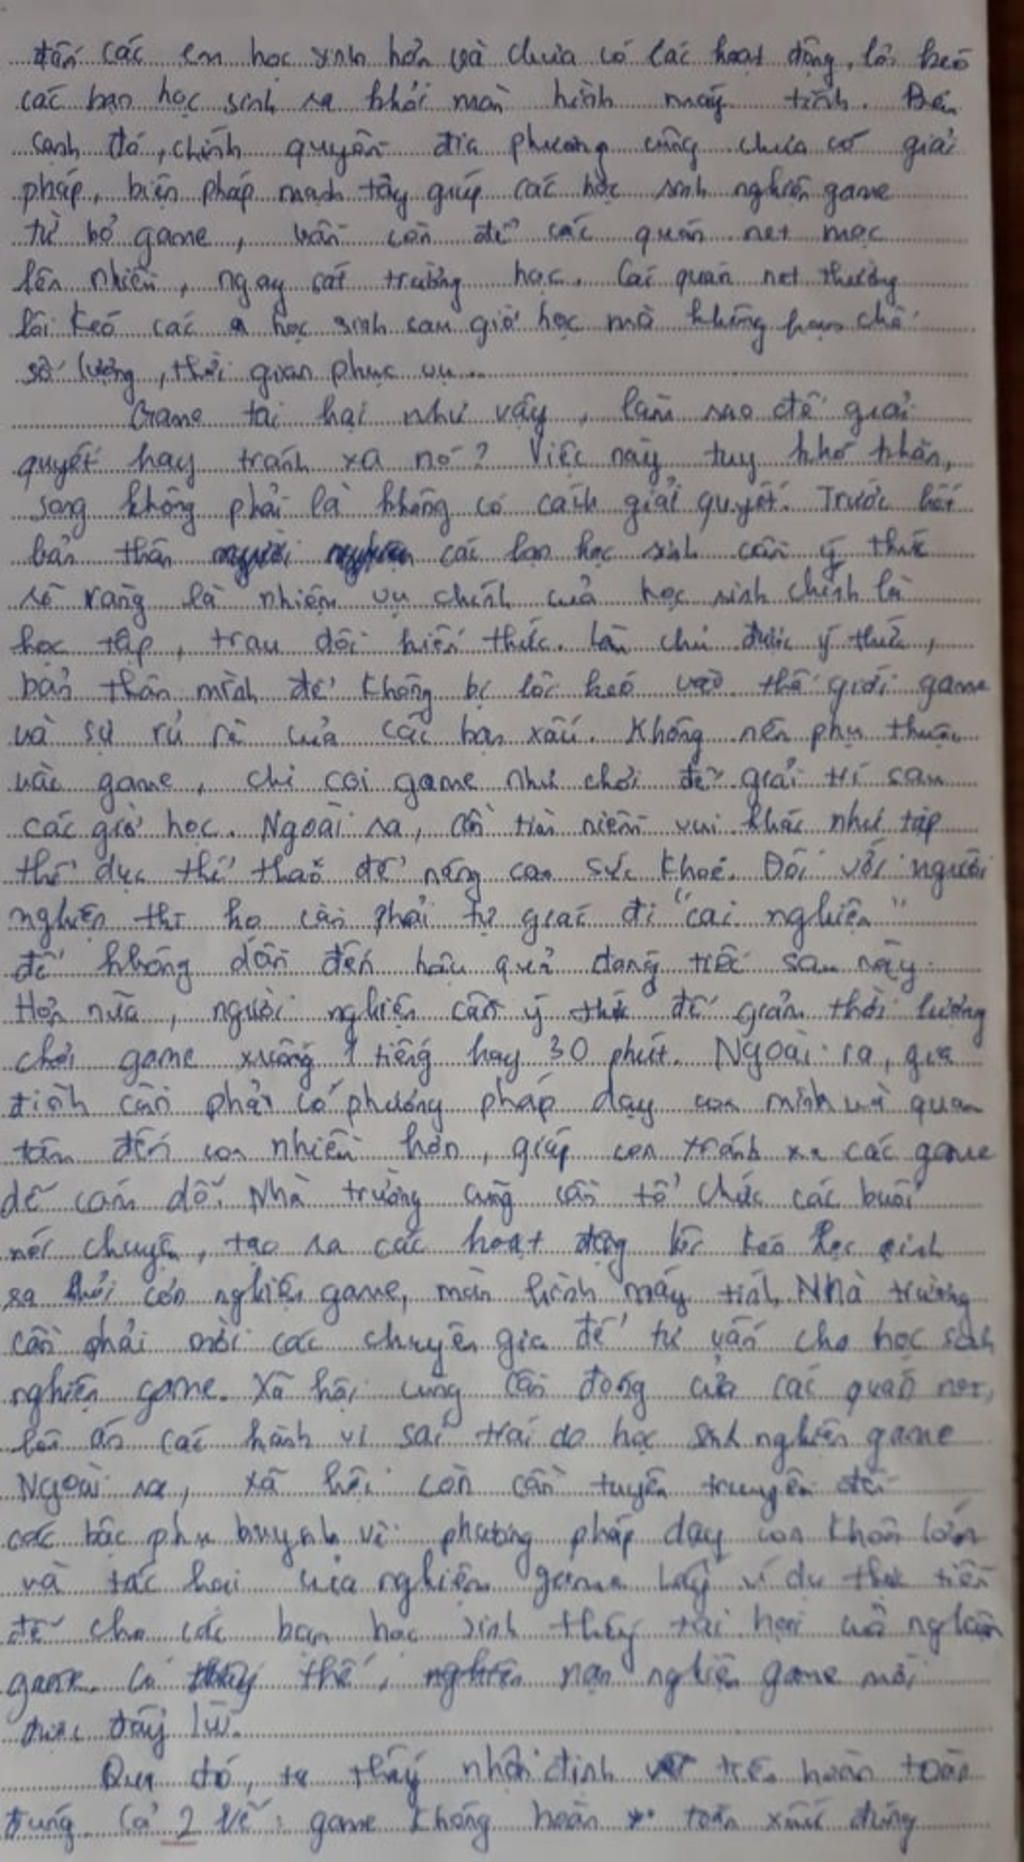 đến các em học sinh hơn và chưa có các hoạt động lôi kéo
các bạn học sinh ra khỏi màn hình máy tính. Bên
cạnh đó, chính quyền địa phương cũng chưa có giải
pháp, biện pháp mạnh tay giúp các học sinh nghiện game
từ bỏ game, vẫn còn để các quán net mọc
lên nhiều, ngay sát trường học. Các quán net thường
lôi kéo các học sinh sau giờ học mà không hạn chế
số lượng, thời gian phục vụ...
Game tai hại như vậy, làm sao để giải
quyết hay tránh xa nó? Việc này tuy khó khăn,
song không phải là không có cách giải quyết. Trước hết
bản thân các bạn học sinh cần ý thức
rõ ràng là nhiệm vụ chính của học sinh chính là
học tập, trau dồi kiến thức. Làm chủ được ý thức,
bản thân mình để không bị lôi kéo vào thế giới game
và sự rủ rê của các bạn xấu. Không nên phụ thuộc
vào game, chỉ coi game như chơi để giải trí sau
các giờ học. Ngoài ra, cần tìm niềm vui khác như tập
thể dục thể thao để nâng cao sức khoẻ. Đối với người
nghiện thì họ cần phải tự giác đi "cai nghiện"
để không dẫn đến hậu quả đáng tiếc sau này.
Hơn nữa, người nghiện cần ý thức để giảm thời lượng
chơi game xuống 1 tiếng hay 30 phút. Ngoài ra, gia
đình cần phải có phương pháp dạy con mình và quan
tâm đến con nhiều hơn, giúp con tránh xa các game
dễ cám dỗ. Nhà trường cũng cần tổ chức các buổi
nói chuyện, tạo ra các hoạt động lôi kéo học sinh
ra khỏi cơn nghiện game, màn hình máy tính. Nhà trường
cần phải mời các chuyên gia để tư vấn cho học sinh
nghiện game. Xã hội cũng cần đóng cửa các quán net,
lên án các hành vi sai trái do học sinh nghiện game
Ngoài ra, xã hội còn cần tuyên truyền đến
các bậc phụ huynh về phương pháp dạy con
và tác hại của nghiện game lấy ví dụ thực tiễn
để cho các bạn học sinh thấy tai hại của nghiện
game. Có thế, nạn nghiện game mới
được đẩy lùi.
Qua đó, ta thấy nhận định trên hoàn toàn
đúng. Cả 2 vế: game không hoàn toàn xấu đúng